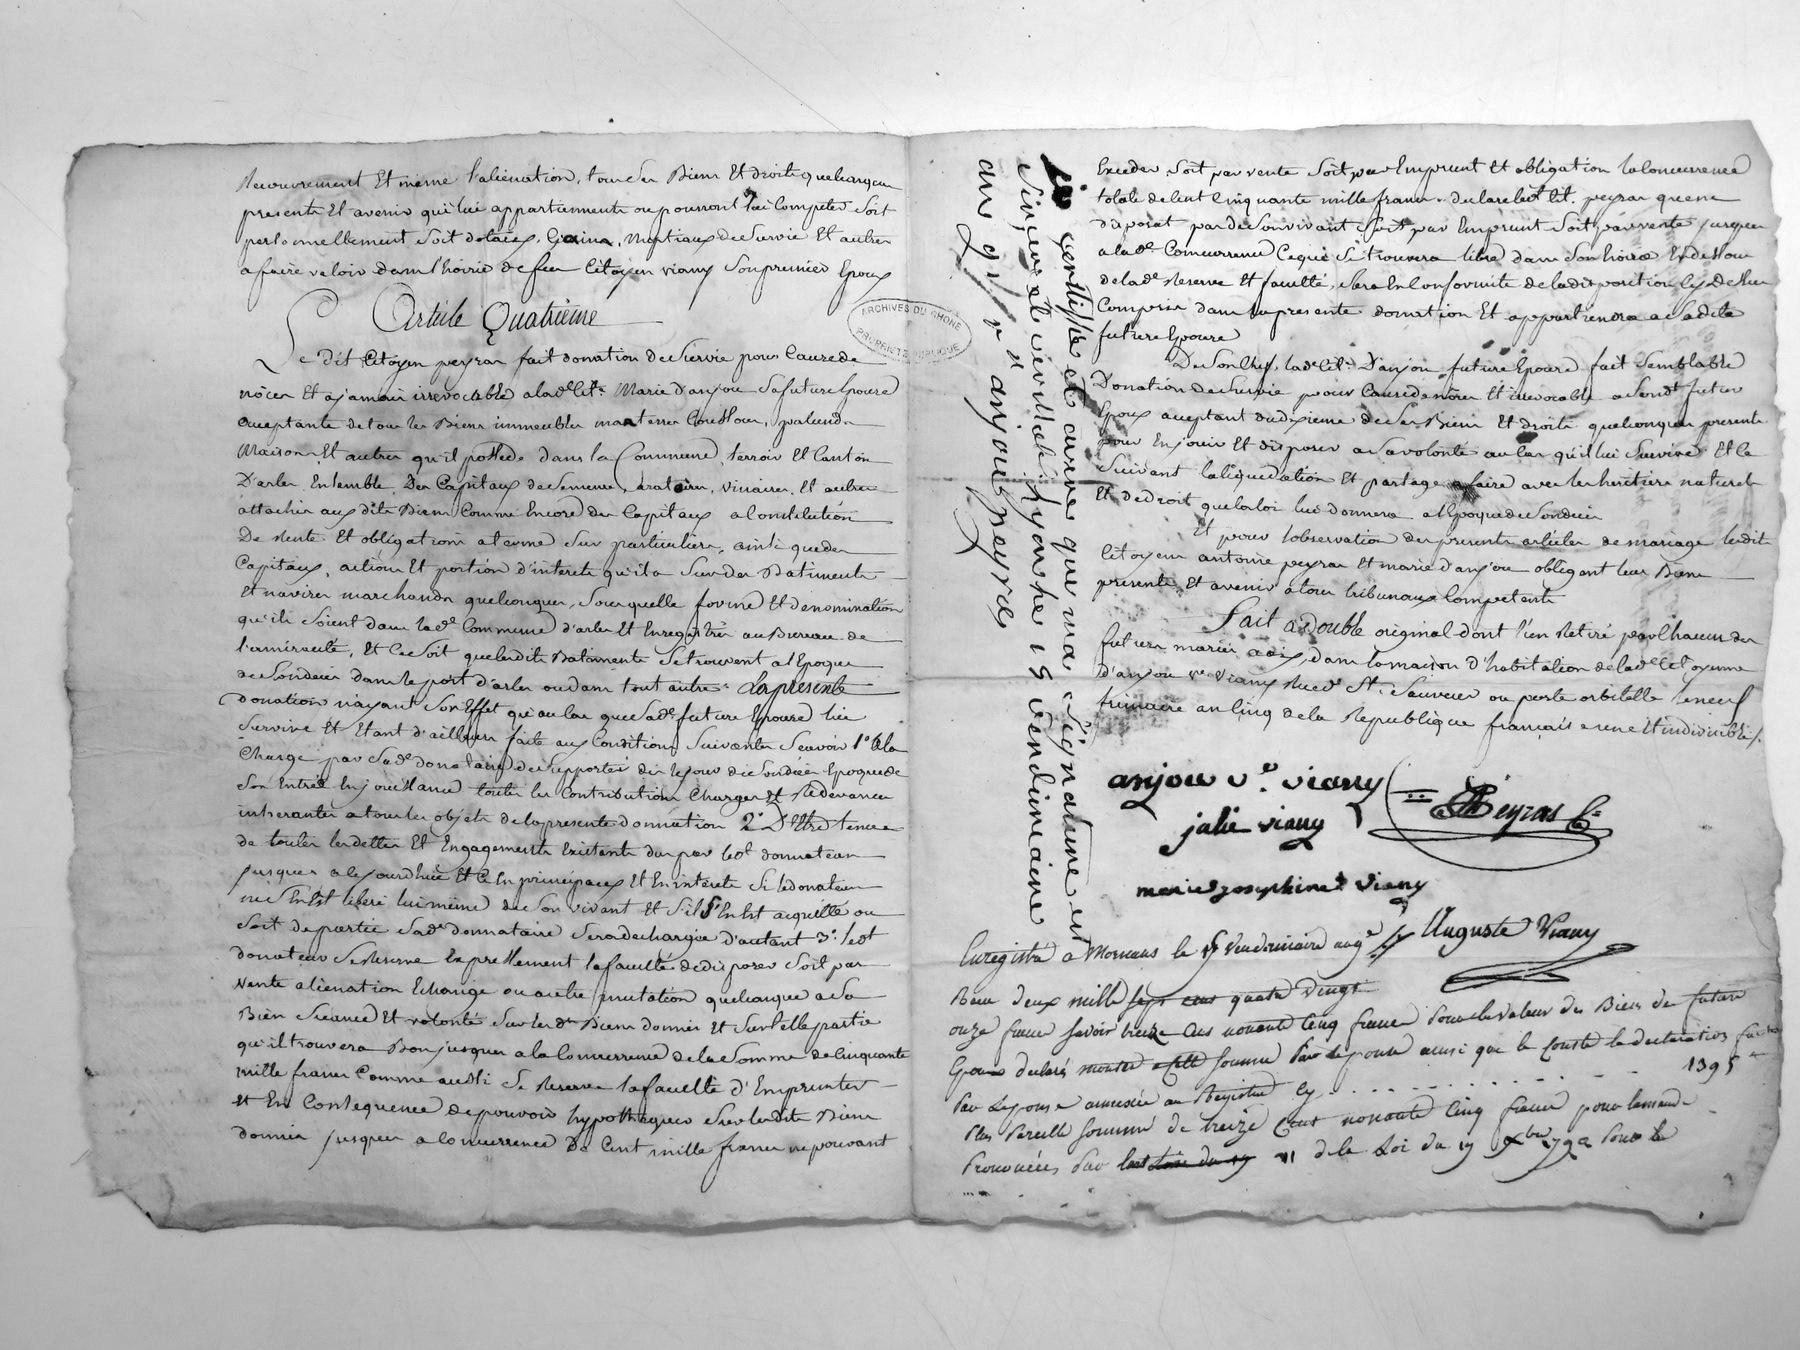 Recouvrement Et même l'aliénation, tous ses Biens Et droits quelconques
presents Et avenir qui lui appartiennent ou pourront lui Competer Soit
personnellement Soit dotaux, Gains, Nuptiaux de Survie Et autres
a faire valoir dans l'hoirie de feu Citoyen viany Son premier Epoux
Article Quatrième
Le dit Citoyen peyras fait donation de Survie pour Cause de
nôces Et a jamais irrevocable a lade Cit.e Marie d'anjou Sa future Epouse
acceptante de tous les Biens immeubles mas terres Coussous, paluds
Maisons Et autres qu'il possede dans la Commune, terroir Et Canton
D'arles, Ensemble Des Capitaux de Semence, aratoires, vinaires, Et autres
attachés aux dits Biens Comme Encore des Capitaux a Constitution
De Rente Et obligations a terme Sur particuliers, ainsi que des
Capitaux, actions Et portion d'interets qu'il a Sur des Batiments
Et navires marchands quelconques, Sous quelle forme Et denomination
qu'ils Soient dans lade Commune d'arles Et Enregistrés au Bureau de
l'amirauté, Et Ce Soit que lesdits Batiments Se trouvent a l'Epoque
de Son deces dans le port d'arles ou dans tout autre. La presente
donation n'ayant Son Effet qu'au Cas que Sade future Epouse lui
Survive Et Etant d'ailleurs faite aux Conditions Suivantes Scavoir 1° a la
Charge par Sade donataire de Supporter dès le jour de Son deces Epoque de
Son Entrée En jouissance toutes les Contributions Charges Et Redevances
inherantes a tous les objets de la presente donnation 2° D'Etre tenue
de toutes les dettes Et Engagements Existants dus par ledt donnateur
jusques a Ce jourd'hui Et Ce En principaux Et En interets Si le donateur
ne S'En Est libéré lui même de Son vivant Et S'il S'En Est acquitté ou
Soit de partie Sade donnataire Sera dechargée d'autant 3° ledt
donateur Se Reserve Expressement la faculté de disposer Soit par
vente aliénation Echange ou autre mutation quelconque a Sa
Bien Seance Et volonté Sur les dts Biens donnés Et Sur telle partie
qu'il trouvera Bon jusques a la Concurrence de la Somme de Cinquante
mille francs Comme aussi Se Reserve la faculté d'Emprunter
Et En Consequence de pouvoir hypothequer Sur lesdits Biens
donnés jusques a Concurrence De Cent mille francs ne pouvant
ARCHIVES DU RHONE
PROPRIETE PUBLIQUE
Exceder Soit par vente Soit par Emprunt Et obligation la Concurrence
totale de Cent Cinquante mille francs. declare ledt Cit. peyras que ne
disposant pas de Son vivant Soit par Emprunt Soit par vente jusques
a lade Concurrence Ce qui Se trouvera libre dans Son hoirie En dessous
de lade Reserve Et faculté, Sera En Conformité de la disposition Cy Dessus
Comprise dans la presente donation Et appartiendra a Sadite
future Epouse
De Son Chef, lade Cit.e D'anjou future Epouse fait Semblable
Donation de Survie pour Cause de nôces Et irrevocable a Sondt futur
Epoux acceptant du dixieme de Ses Biens Et droits quelconques presents
pour En jouir Et disposer a Sa volonté au Cas qu'il lui Survive Et Ce
Suivant la liquidation Et partage a faire avec les heritiers naturels
Et de droit que la loi lui donnera a l'Epoque de Son deces
Et pour l'observation des presents articles de mariage lesdits
Citoyens antoine peyras Et marie d'anjou obligent leurs Biens
presents Et avenir a tous tribunaux Competents
Fait a Double original dont l'un Retiré par Chacun des
futurs mariés a aix, dans la maison d'habitation de lade Citoyenne
d'anjou ve Viany Rue St. Sauveur ou porte orbitelle le neuf
frimaire an Cinq de la Republique française une Et indivisible /.
anjou ve. viany
Peyras
julie viany
marie josephine viany
Auguste Viany
Enregistré a Mornans le Vendemiaire
Reçu deux mille sept cens quatre vingt
onze francs savoir treize Cens nonante Cinq francs Pour la valeur des Biens du future
Epoux déclarés monter a cette somme Par le ponse ainsi que le Conste la declaration
Par annexée au Registre Cy . . . . . . . . . . . . 1395
Plus Pareille somme de treize Cens nonante Cinq francs pour
Prononcées Par de la Loi du 19 xbre 1792 Pour
certiffié et avéré que ma Signature est
Sincere et véritable, Lyon he 18 vendimiaire
an 9 anjou peyras